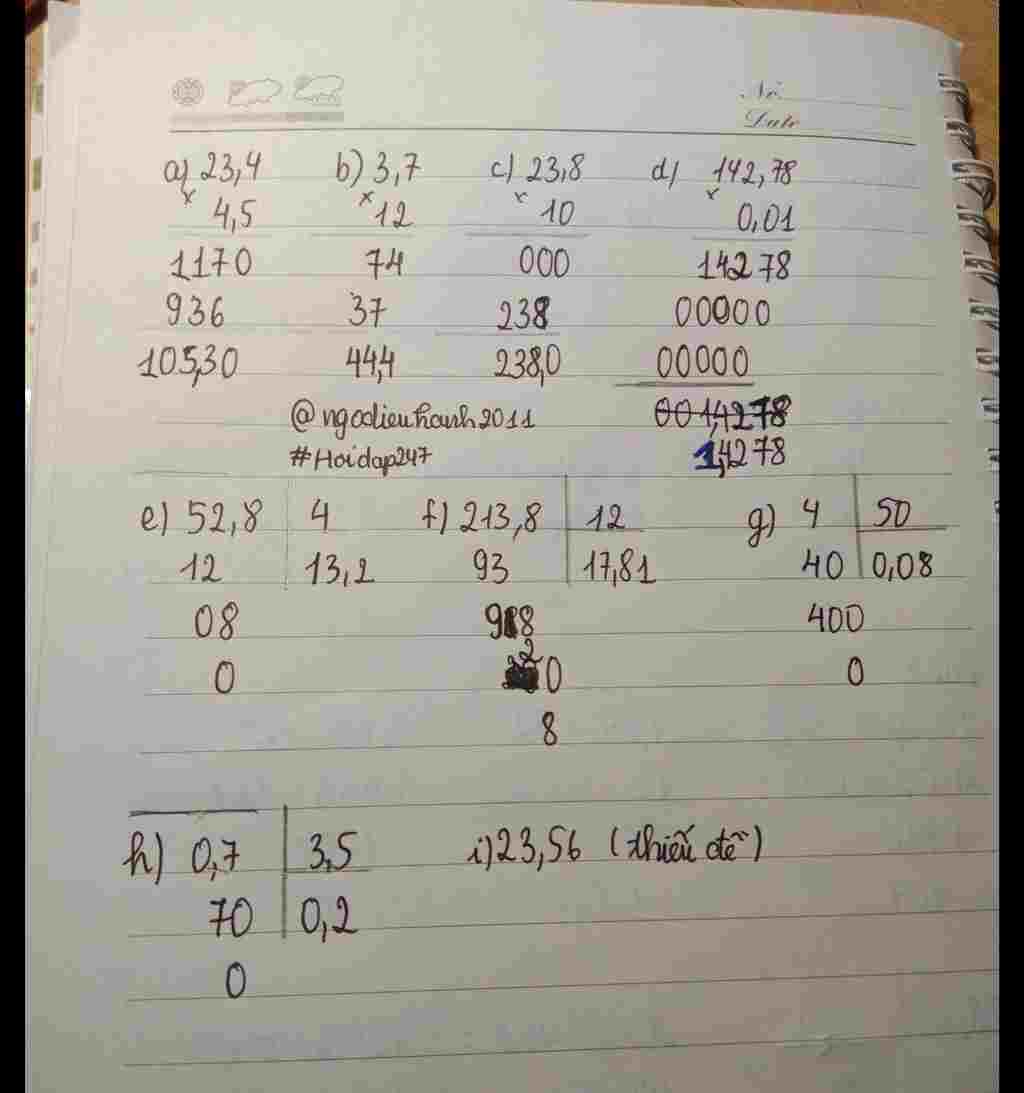 No.
Date
a) 23,4 b) 3,7 c) 23,8 d) 142,78
x 4,5 x 12 x 10 x 0,01
1170 74 000 14278
936 37 238 00000
105,30 44,4 238,0 00000
001,4278
@ngoclieuhanh2011 1,4278
#Hoidap247
e) 52,8 4 f) 213,8 12 g) 4 50
12 13,2 93 17,81 40 0,08
08 98 400
0 20 0
8
h) 0,7 3,5 i) 23,56 (thiếu đề)
70 0,2
0